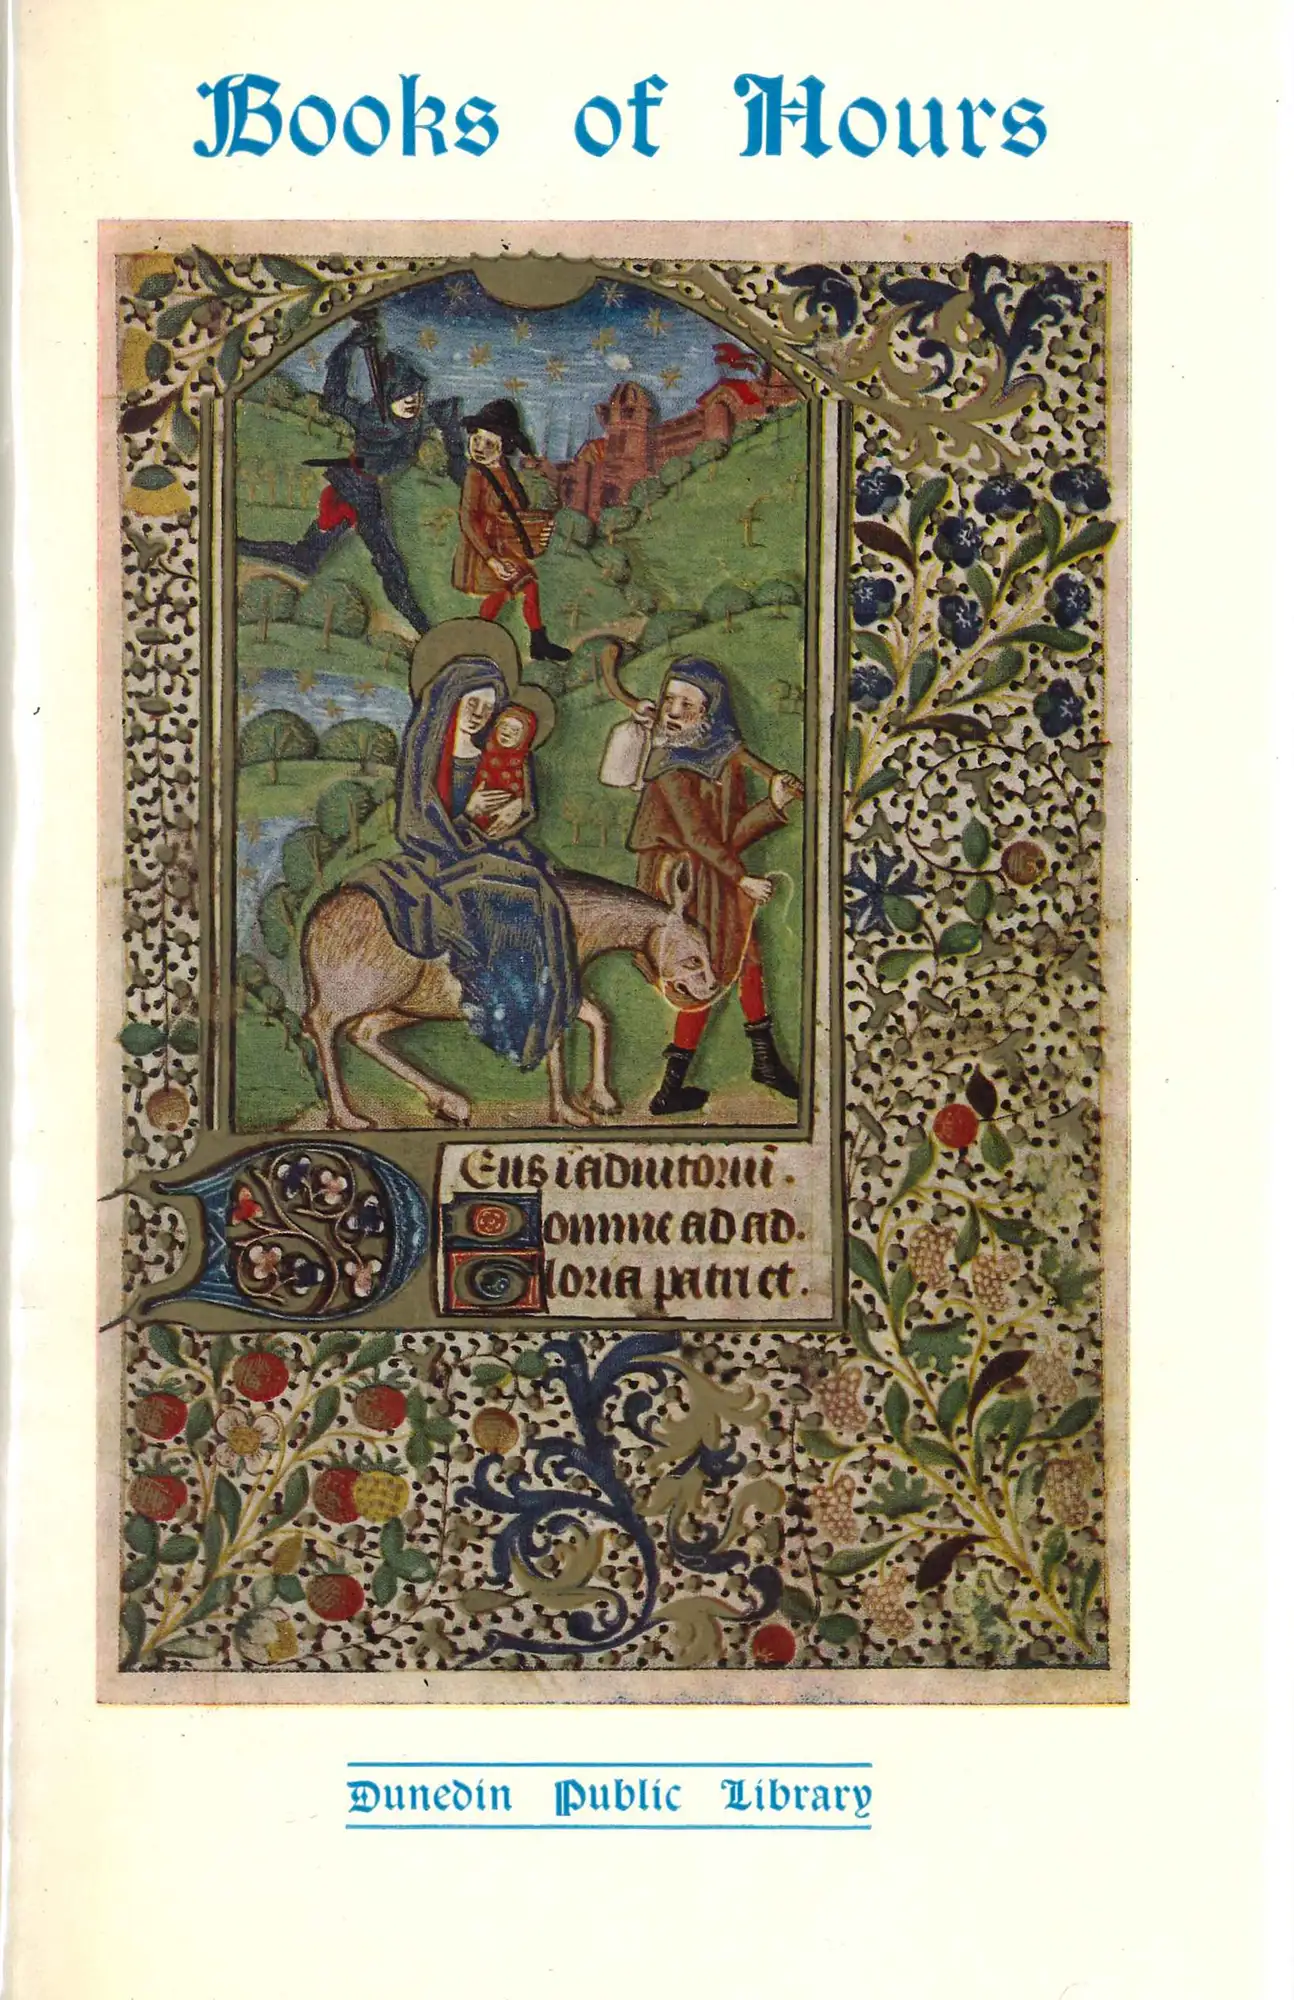 Books of Hours
Deus i adiutoriu.
Domine ad ad.
Gloria patri et.
Dunedin Public Library